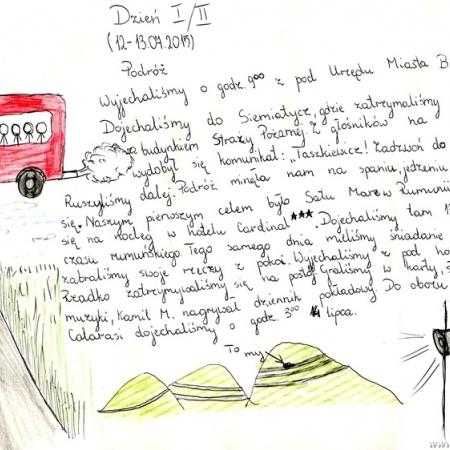 Dzień I/II
(12-13.07.2015)
Podróż
Wyjechaliśmy o godz. 9⁰⁰ z pod Urzędu Miasta B
Dojechaliśmy do Siemiatycz, gdzie zatrzymaliśmy
za budynkiem Straży Pożarnej. Z głośników na
wydobył się komunikat: „Taszkiewicz! Zadzwoń do
Ruszyliśmy dalej. Podróż minęła nam na spaniu, jedzeniu
się. Naszym pierwszym celem było Satu Mare w Rumunii
się na nocleg w hotelu Cardinal ***. Dojechaliśmy tam 1
czasu rumuńskiego. Tego samego dnia mieliśmy śniadanie
zabraliśmy swoje rzeczy z pokoi. Wyjechaliśmy z pod ho
Rzadko zatrzymywaliśmy się na postój. Graliśmy w karty, s
muzyki, Kamil M. nagrywał dziennik pokładowy. Do obozu
Calarasi dojechaliśmy o godz. 3⁰⁰ 14 lipca.
To my
www